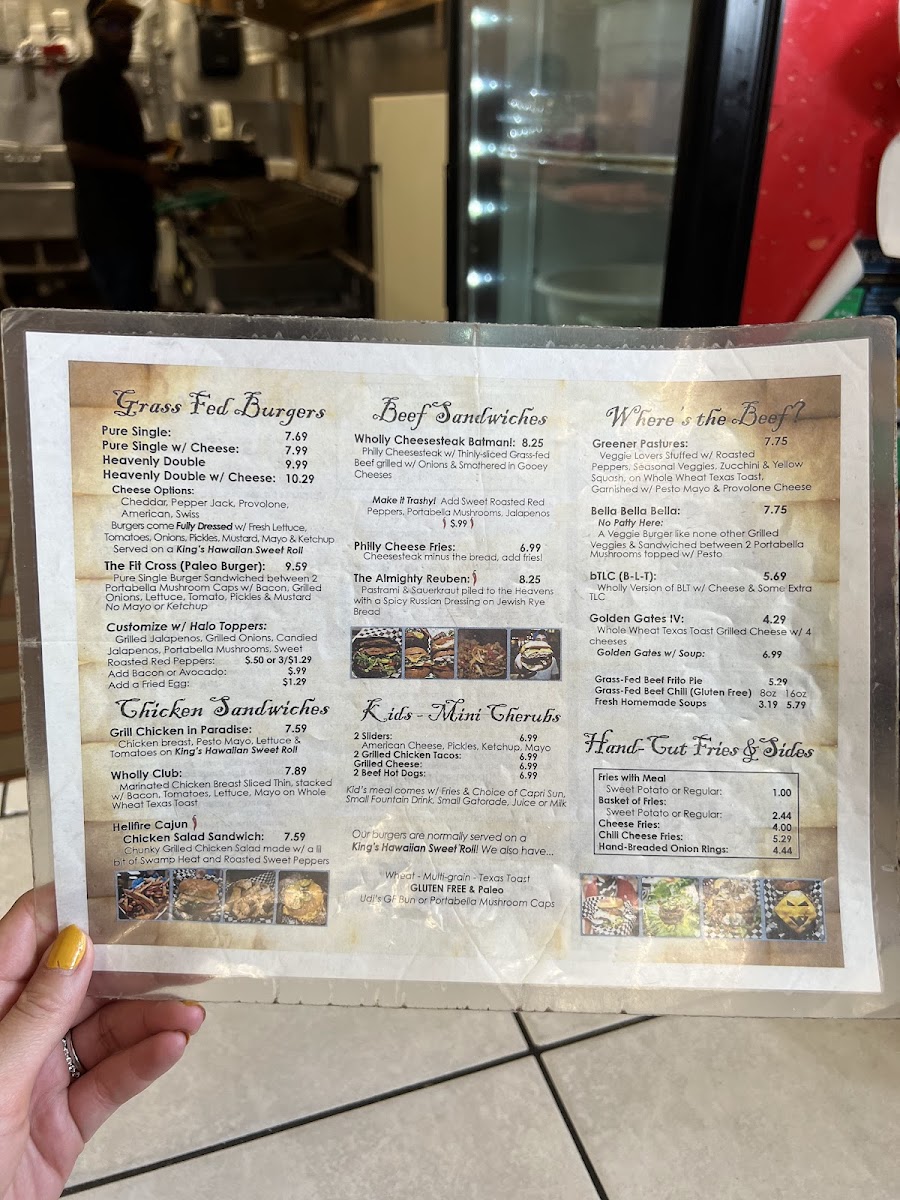 Grass Fed Burgers
Pure Single: 7.69
Pure Single w/ Cheese: 7.99
Heavenly Double 9.99
Heavenly Double w/ Cheese: 10.29
Cheese Options:
Cheddar, Pepper Jack, Provolone,
American, Swiss
Burgers come Fully Dressed w/ Fresh Lettuce,
Tomatoes, Onions, Pickles, Mustard, Mayo & Ketchup
Served on a King's Hawaiian Sweet Roll
The Fit Cross (Paleo Burger): 9.59
Pure Single Burger Sandwiched between 2
Portabella Mushroom Caps w/ Bacon, Grilled
Onions, Lettuce, Tomato, Pickles & Mustard
No Mayo or Ketchup
Customize w/ Halo Toppers:
Grilled Jalapenos, Grilled Onions, Candied
Jalapenos, Portabella Mushrooms, Sweet
Roasted Red Peppers: $.50 or 3/$1.29
Add Bacon or Avocado: $.99
Add a Fried Egg: $1.29
Chicken Sandwiches
Grill Chicken in Paradise: 7.59
Chicken breast, Pesto Mayo, Lettuce &
Tomatoes on King's Hawaiian Sweet Roll
Wholly Club: 7.89
Marinated Chicken Breast Sliced Thin, stacked
w/ Bacon, Tomatoes, Lettuce, Mayo on Whole
Wheat Texas Toast
Hellfire Cajun
Chicken Salad Sandwich: 7.59
Chunky Grilled Chicken Salad made w/ a lil
bit of Swamp Heat and Roasted Sweet Peppers
Beef Sandwiches
Wholly Cheesesteak Batman!: 8.25
Philly Cheesesteak w/ Thinly-sliced Grass-fed
Beef grilled w/ Onions & Smothered in Gooey
Cheeses
Make it Trashy! Add Sweet Roasted Red
Peppers, Portabella Mushrooms, Jalapenos
$.99
Philly Cheese Fries: 6.99
Cheesesteak minus the bread, add fries!
The Almighty Reuben: 8.25
Pastrami & Sauerkraut piled to the Heavens
with a Spicy Russian Dressing on Jewish Rye
Bread
Kids - Mini Cherubs
2 Sliders: 6.99
American Cheese, Pickles, Ketchup, Mayo
2 Grilled Chicken Tacos: 6.99
Grilled Cheese: 6.99
2 Beef Hot Dogs: 6.99
Kid's meal comes w/ Fries & Choice of Capri Sun,
Small Fountain Drink, Small Gatorade, Juice or Milk
Our burgers are normally served on a
King's Hawaiian Sweet Roll! We also have...
Wheat - Multi-grain - Texas Toast
GLUTEN FREE & Paleo
Udi's GF Bun or Portabella Mushroom Caps
Where's the Beef?
Greener Pastures: 7.75
Veggie Lovers Stuffed w/ Roasted
Peppers, Seasonal Veggies, Zucchini & Yellow
Squash, on Whole Wheat Texas Toast,
Garnished w/ Pesto Mayo & Provolone Cheese
Bella Bella Bella: 7.75
No Patty Here:
A Veggie Burger like none other Grilled
Veggies & Sandwiched between 2 Portabella
Mushrooms topped w/ Pesto
bTLC (B-L-T): 5.69
Wholly Version of BLT w/ Cheese & Some Extra
TLC
Golden Gates !V: 4.29
Whole Wheat Texas Toast Grilled Cheese w/ 4
cheeses
Golden Gates w/ Soup: 6.99
Grass-Fed Beef Frito Pie 5.29
Grass-Fed Beef Chili (Gluten Free) 8oz 16oz
Fresh Homemade Soups 3.19 5.79
Hand-Cut Fries & Sides
Fries with Meal
Sweet Potato or Regular: 1.00
Basket of Fries:
Sweet Potato or Regular: 2.44
Cheese Fries: 4.00
Chili Cheese Fries: 5.29
Hand-Breaded Onion Rings: 4.44